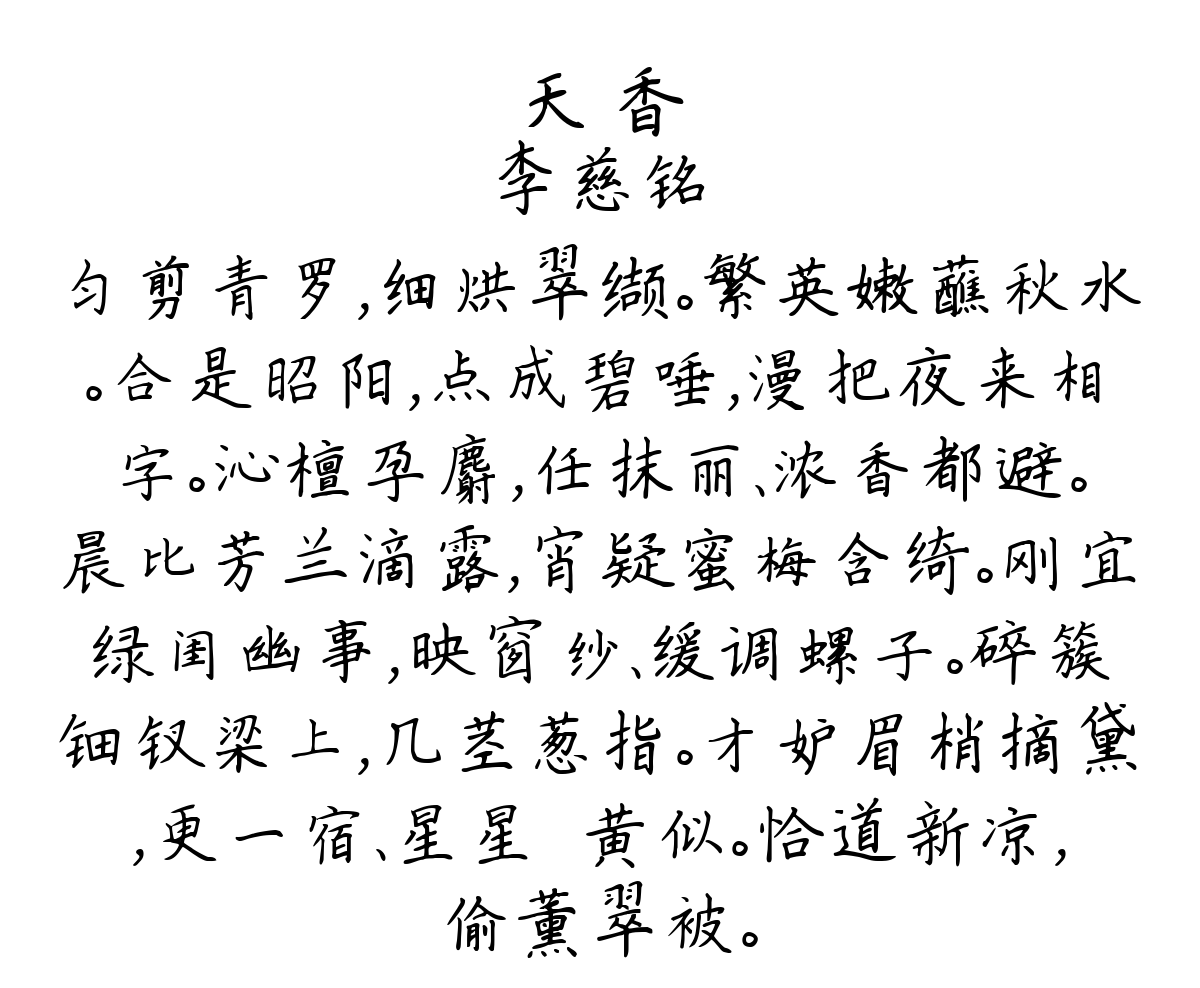 天香
李慈铭
匀剪青罗,细烘翠缬。繁英嫩蘸秋水
。合是昭阳,点成碧唾,漫把夜来相
字。沁檀孕麝,任抹丽、浓香都避。
晨比芳兰滴露,宵疑蜜梅含绮。刚宜
绿闺幽事,映窗纱、缓调螺子。碎簇
钿钗梁上,几茎葱指。才妒眉梢摘黛
,更一宿、星星 黄似。恰道新凉,
偷薰翠被。